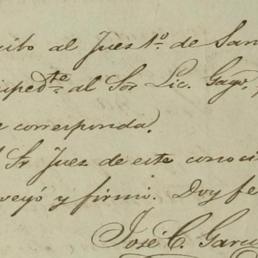 cito al Jues 1º. de San
espedte. al Sor Lic. Gago,
e corresponda.
Sr Juez de este conoci
veyó y firmó. Doy fe
José C. Garc